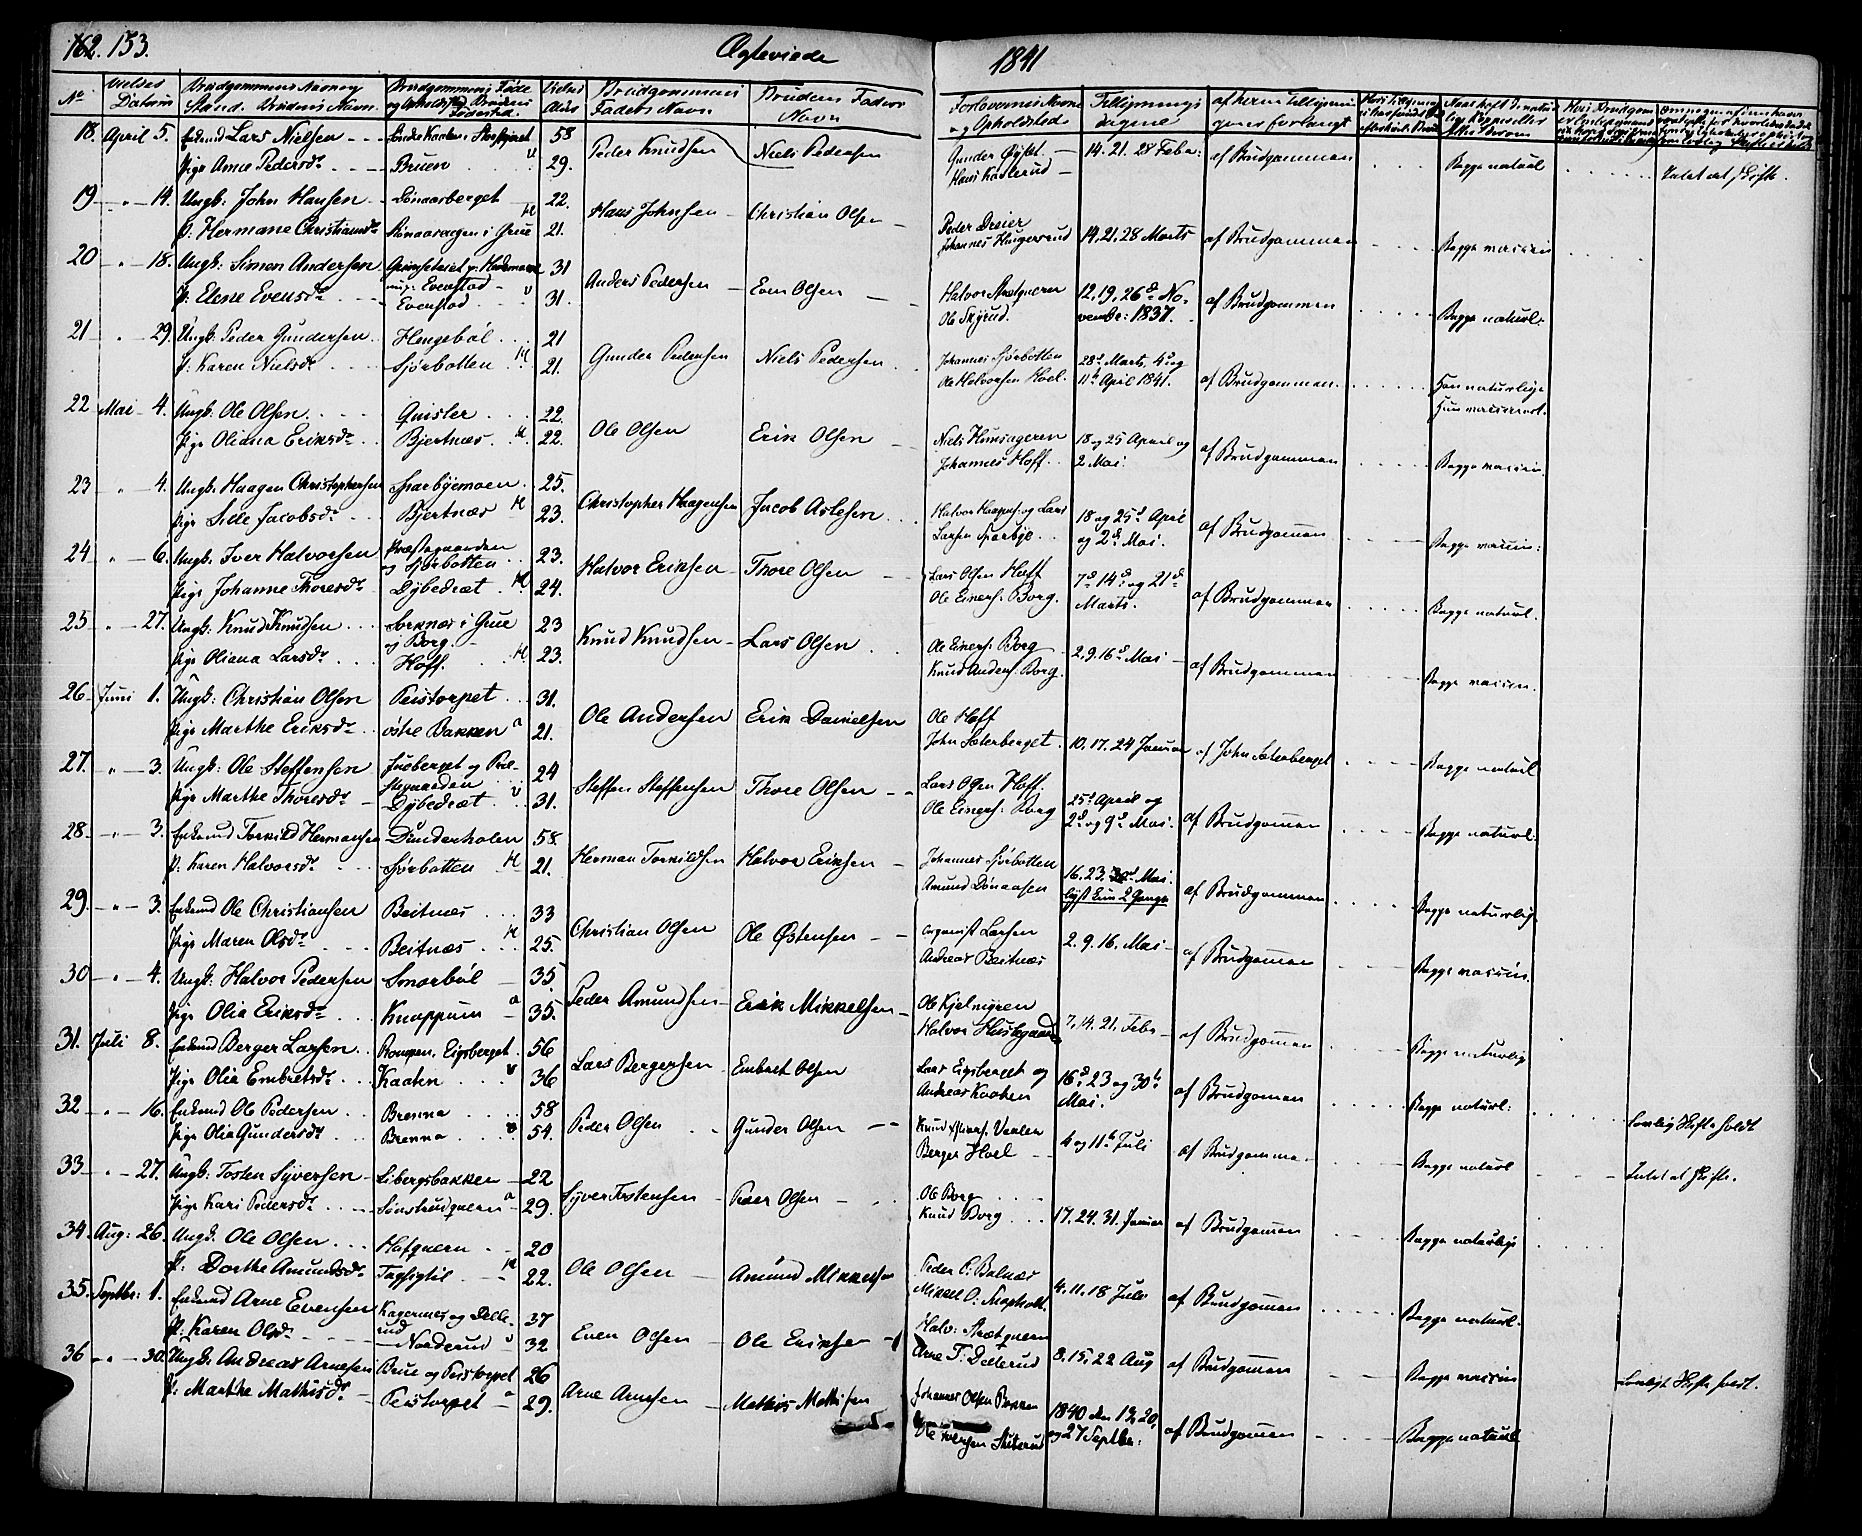 162. 153. Ægteviede 1841
No Vielses Datum Brudgommens Navn og Stand. Brudens Navn. Brudgommens Føde og Opholdssted Brudens Fødested. Vielses Alder Brudgommens Faders Navn Brudens Faders Navn Forlovernes Navne og Opholdssted Tillysnings dagene af hvem Tillysningerne forlangt
18. April 5. Enkemd Lars Nielsen 58 Peder Knudsen Niels Pedersen Gunder 14. 21. 28 Febr: af Brudgommen Begge naturl Intet at skifte.
Pige Anne Pedersdr Bruen v 29. Hans Kaalerud
19 " 14. Ungk. John Hansen Dönaaberget 22. Hans Johnsen Christian Olsen Peder Dreier 14. 21. 28 Marts af Brudgommen Begge vaccin
P. Hermane Christiansdr i Grue H 21. Johannes Haugerrud
20 " 18. Ungk: Simon Andersen 31 Anders Pedersen Even Olsen Halvor 12. 19. 26de November 1837. af Brudgommen Begge naturl:
P. Elene Evensdr Evenstad Evenstad v 31. Ole Skyrud.
21 " 29. Ungk. Peder Gundersen Hengeböl 21 Gunder Pedersen Niels Pedersen Johannes Sjörbotten 28de Marts, 4de og 11te April 1841. af Brudgommen Han naturlige
P. Karen Nielsdr Sjörbotten H 21. Ole Halvorsen Hoel. Hun vaccineret.
22 Mai 4. Ungk: Ole Olsen Qvisler 22. Ole Olsen Erik Olsen Niels Hunsageren 18 og 25 April og 2 Mai. af Brudgommen Begge vaccin.
Pige Oliana Eriksdr Bjertnæs H. 22. Johannes Hoff.
23 " 4. Ungk. Haagen Christophersen Sparbyemoen 25. Christopher Haagensen Jacob Aslesen Halvor Haagens. og Lars 18 og 25de April og 2de Mai. af Brudgommen Begge vaccin:
Pige Sille Jacobsdr Bjertnæs H 23. Larsen Sparbye
24 " 6. Ungk: Iver Halvorsen Præstegaarden og Sjörbotten 23. Halvor Eriksen Thore Olsen Lars Olsen Hoff 7de 14de og 21de Marts. af Brudgommen Begge naturl.
Pige Johanne Thoresdr Dybedræt H. 24. Ole Einers. Borg.
25 " 27. Ungk. Knud Knudsen Sorknæs i Grue og Borg 23 Knud Knudsen Lars Olsen Ole Einers. Borg 2. 9. 16de Mai af Brudgommen Begge vaccin.
Pige Oliana Larsdr Hoff. H 23. Knud Anders. Borg.
26. Juni 1. Ungk: Christian Olsen Peistorpet 31. Ole Andersen Erik Danielsen Ole Hoff 10. 17. 24 Januar af John Sæterberget Begge naturl
Pige Marthe Eriksdr østre Bakken a 21. John Sæterberget.
27. " 3. Ungk: Ole Steffensen Juvberget og Præstegaarden 24 Steffen Steffensen Thore Olsen Lars Olsen Hoff. 25de April og 2de og 9de Mai. af Brudgommen Begge naturl.
Pige Marthe Thoresdr Dybedræt v 31. Ole Einers. Borg
28. " 3. Enkemd Torkild Hermansen Dunderholen 58. Herman Torkildsen Halvor Eriksen Johannes Sjörbotten 16. 23. Mai. lyst kun 2 Gange af Brudgommen Begge naturlig
P. Karen Halvorsdr Sjörbotten H 21. Amund Dönaasen
29. " 3. Enkemd Ole Christiansen Beitnæs 33 Christian Olsen Ole Østensen organist Larsen 2. 9. 16. Mai af Brudgommen Begge vaccin.
Pige Maren Olsdr Beitnæs H 25. Andreas Beitnæs
30 " 4. Ungk: Halvor Pedersen Smorböl 35. Peder Amundsen Erik Mikkelsen Ole Kjelmyren 7. 14. 21. Febr af Brudgommen Begge naturlig
Pige Olia Eriksdr Knappum a 35. Halvor
31. Juli 8. Enkemd Berger Larsen Rompen. Eigsberget 56 Lars Bergersen Embret Olsen Lars Eigsberget og 16de 23 og 30te Mai. af Brudgommen Begge naturl:
Pige Olia Embretsdr Kaaten v 36 Andreas Kaaten
32 " 16. Enkemd Ole Pedersen Brenna 58 Peder Olsen Gunder Olsen Knud Vaaler 4 og 11te Juli af Brudgommen Begge naturl Lovlig Skifte holdt
Pige Olia Gundersdr Brenna v 54. Berger Hoel
33 " 27. Ungk. Tosten Syversen Libergsbakken 22 Syver Tostensen Peder Olsen Ole Borg 17. 24. 31. Januar af Brudgommen Begge naturlige Intet at skifte.
Pige Kari Pedersdr a 29. Knud Borg
34. Aug: 26. Ungk. Ole Olsen Hofqvern 20 Ole Olsen Amund Mikkelsen Peder O. Balnæs 4. 11. 18 Julii af Brudgommen Begge naturl.
P. Dorthe Amundsdr H 22. Mikkel O.
35. Septbr: 1. Enkemd Arne Evensen Kagernæs og Dellerud 37 Even Olsen Ole Eriksen Halv: 8. 15. 22 Aug af Brudgommen Begge vaccin Lovligt Skifte holdt.
P. Karen Olsdr Norderud v 32 Arne T. Dellerud
36 " 30. Ungk. Andreas Arnesen Brue og Peistorpet 26 Arne Arnesen Mathis Mathisen Johannes Olsen Bakken 1840 den 13, 20, og 27 Septbr: af Brudgommen Begge naturl
P. Marthe Mathisdr Peistorpet a 29. Ole Iversen